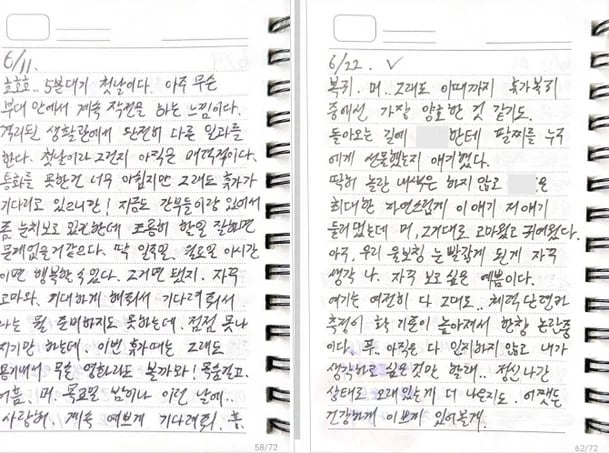 6/11.
호호호.. 5분대기 첫날이다. 아주 무슨
부대 안에서 계속 작전을 하는 느낌이다.
격리된 생활관에서 완전히 다른 일과를
한다. 첫날이라 그런지 아직은 매력적이다.
통화를 못한건 너무 아쉽지만 그래도 휴가가
기다리고 있으니깐! 지금도 간부들이랑 있어서
좀 눈치보고 있긴한데 조용히 한일 잘하면
문제없을거같은다. 딱 일주일. 월요일 이시간
이면 행복할 수 있다. 그거면 됐지. 자꾸
고마와. 기대하게 해줘서 기다려줘서
나는 뭘 준비하지도 못하는데. 점점 못나
지기만 하는데. 이번 휴가때는 그래도
용기내서 목을 영화라도 볼까와!
어흠. 머. 목요일 밤이나 이런 날에..
사랑해. 계속 예쁘게 기다려줘. 흥.
58/72
6/22. ✓
복귀. 머.. 그래도 이때까지 휴가복귀
중에선 가장 양호한 것 같기도.
돌아오는 길에 한테 팔찌를 누구
에게 선물했는지 얘기했다.
딱히 놀란 내색은 하지 않고 은
최대한 자연스럽게 이얘기 저얘기
들려줬는데 머, 그게대로 고마웠고 귀여웠다.
아주. 우리 울보찡 눈 빨갛게 된게 자꾸
생각 나. 자꾸 보고싶은 예쁨이다.
여기는 여전히 다 그대로.. 체력단련과
축적이 확 기준이 높아져서 한창 논란중
이다. 푸. 아직은 다 인지하지 않고 내가
생각하고 싶은것만 할래.. 정신나간
상태로 오래있는게 더 나은지도. 어쨌든
건강하게 이쁘게 있어볼게.
62/72